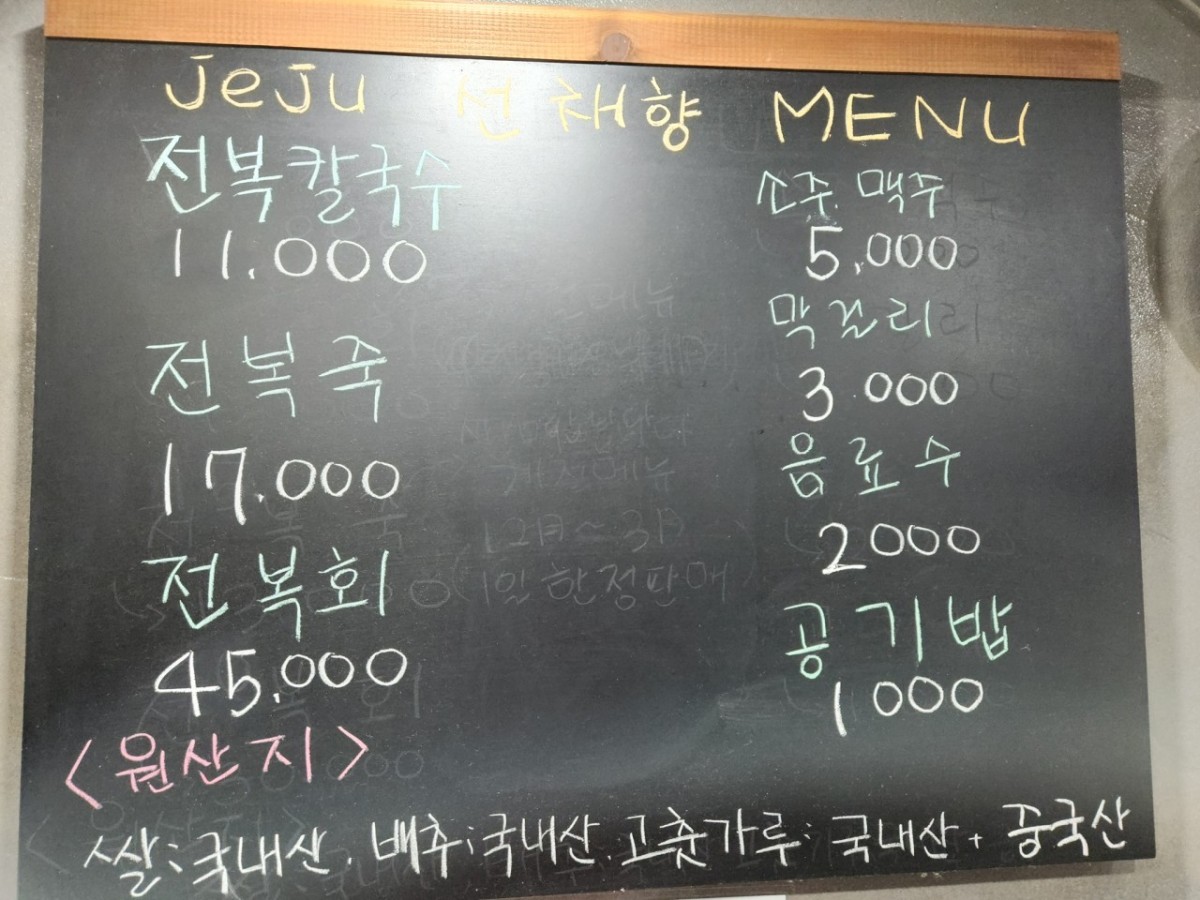 JeJu 선채향 MENU
전복칼국수
11.000
전복죽
17.000
전복회
45.000
소주. 맥주
5.000
막걸리
3.000
음료수
2000
공기밥
1000
<원산지>
쌀:국내산. 배추:국내산. 고춧가루: 국내산+ 중국산